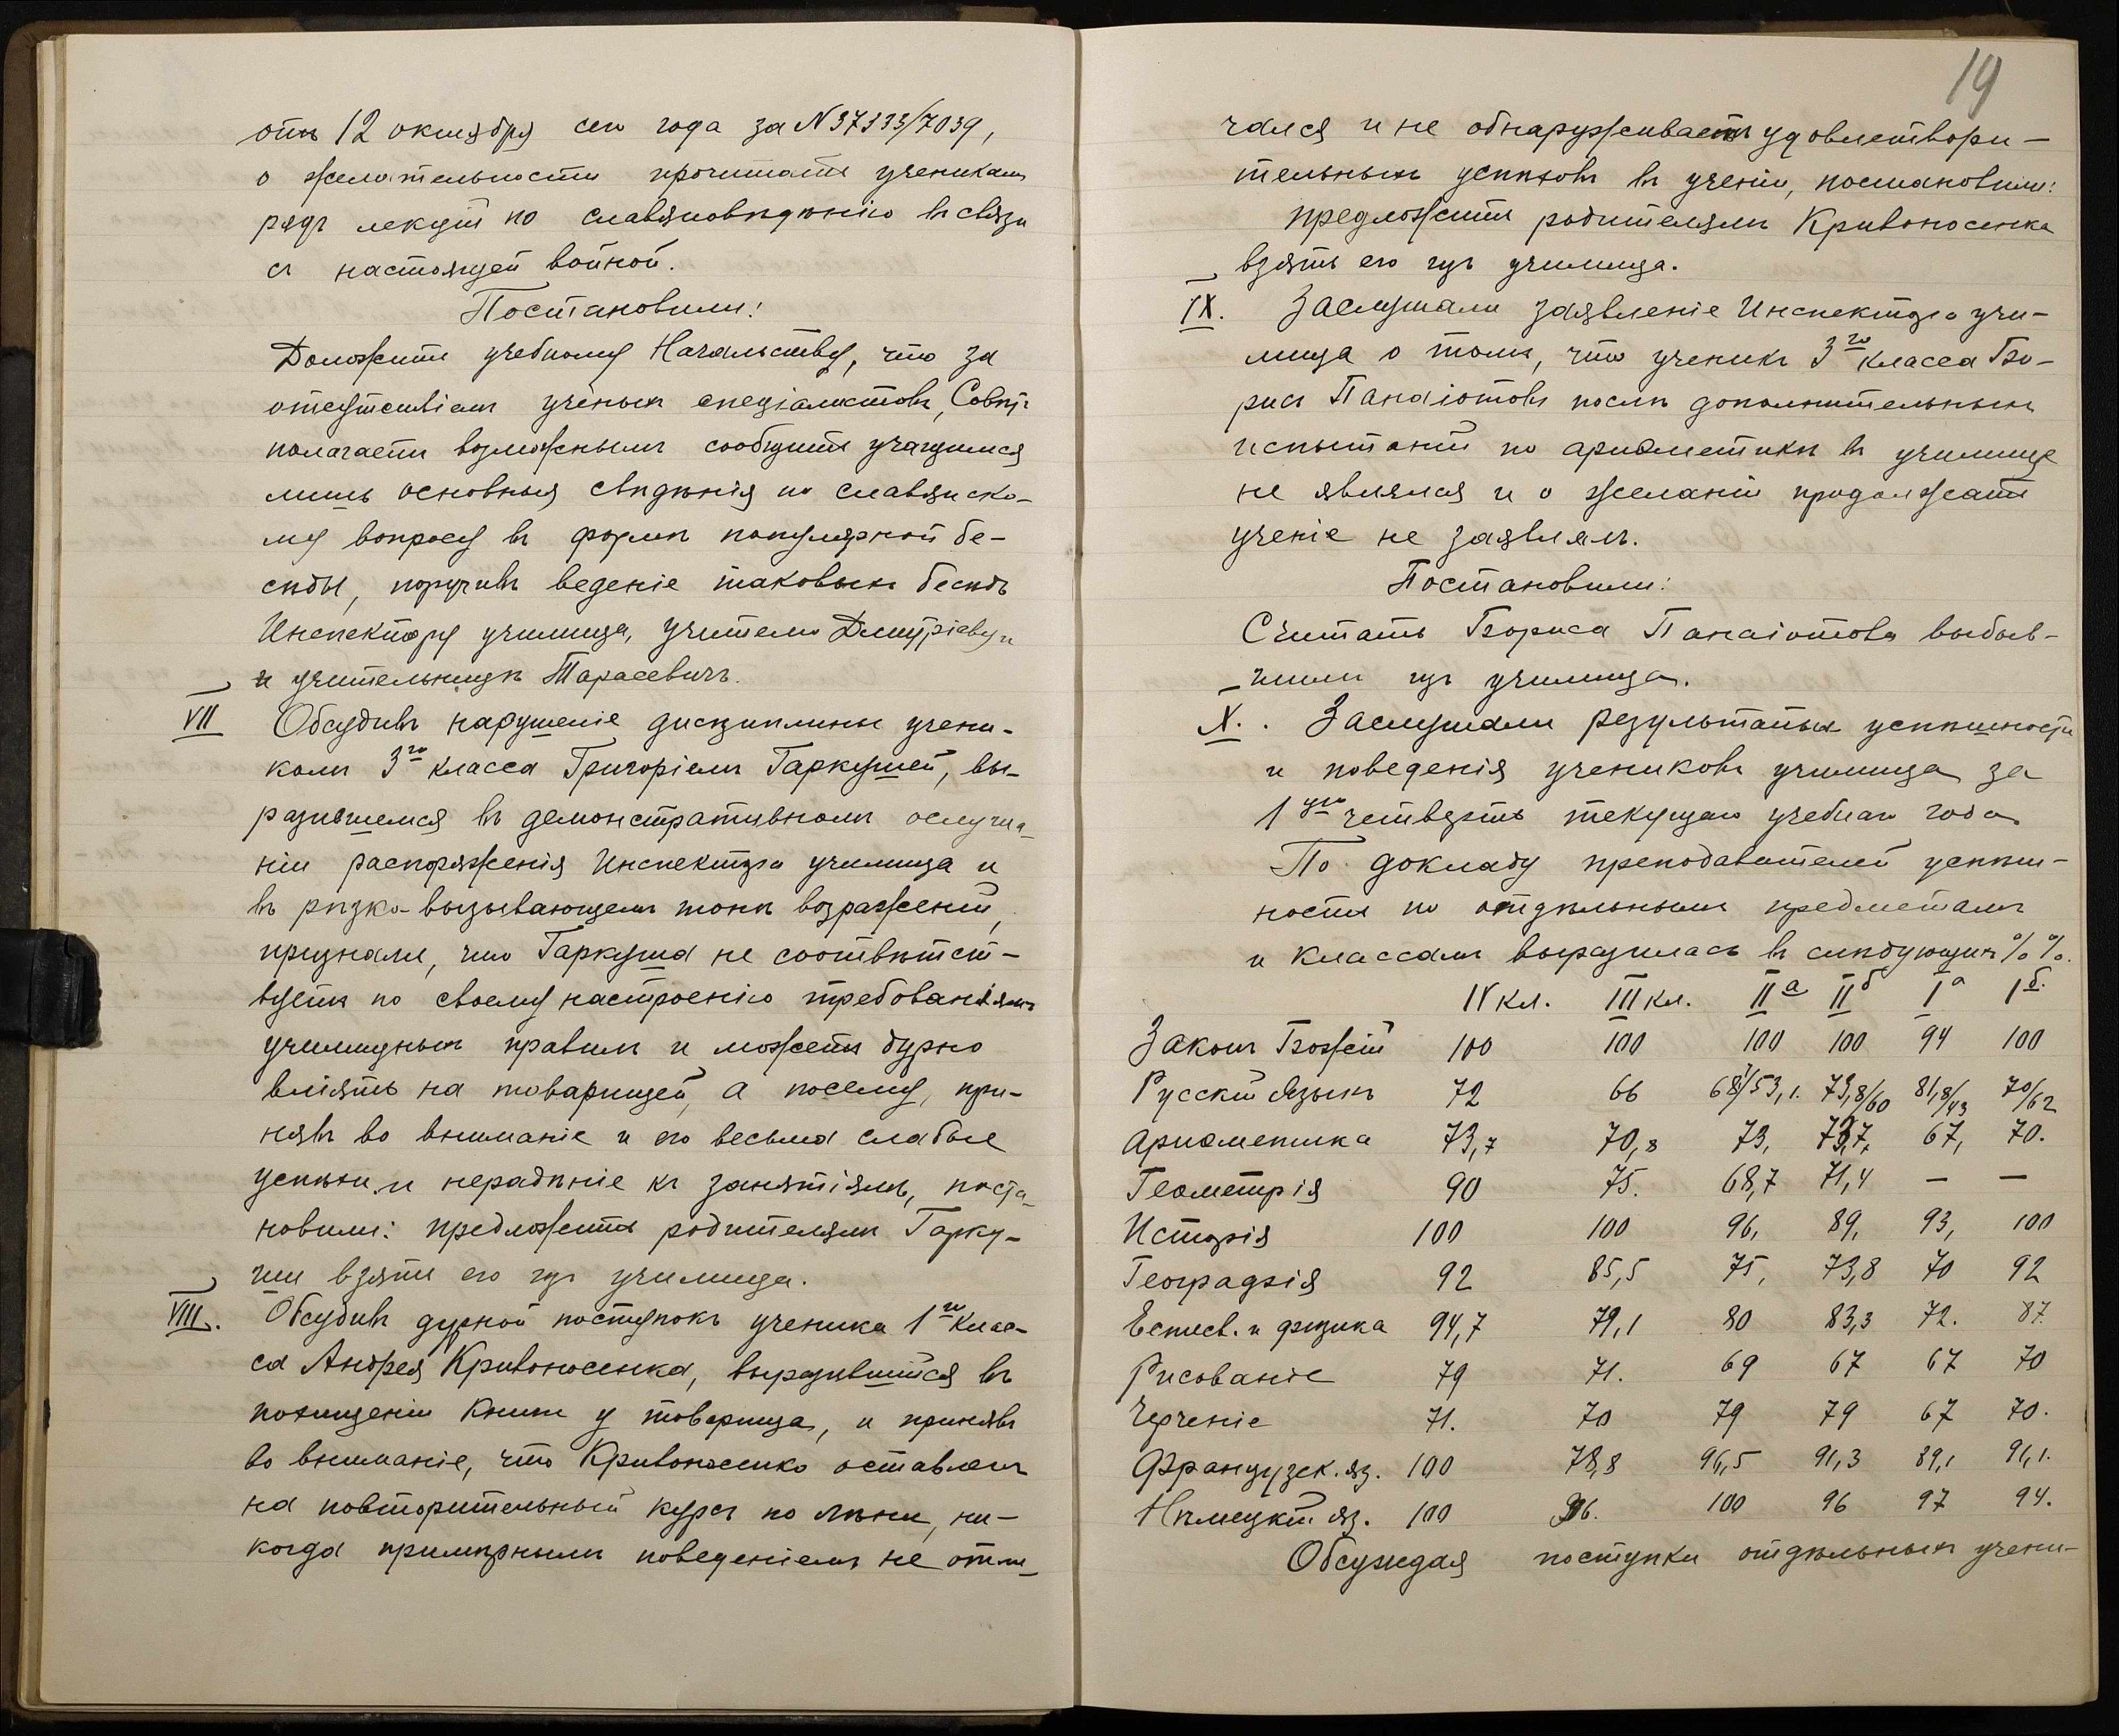 отъ 12 октября сего года за № 37333/7039,
о желательности прочитать ученикамъ
рядъ лекцій по славяновѣдѣнію въ связи
съ настоящей войной.
Постановили:
Доложить учебному Начальству, что за
отсутствіемъ ученыхъ спеціалистовъ, Совѣтъ
полагаетъ возможнымъ сообщить учащимся
лишь основныя свѣдѣнія по славянско-
му вопросу въ формѣ популярной бе-
сѣды, поручивъ веденіе таковыхъ бесѣдъ
Инспектору училища, учителю Дмитріеву и
и учительницѣ Тарасевичъ.
VII Обсудивъ нарушеніе дисциплины учени-
комъ 3го класса Григоріемъ Гаркушей, вы-
разившемся въ демонстративномъ ослуша-
ніи распоряженія Инспектора училища и
въ рѣзко-вызывающемъ тонѣ возраженій,
признали, что Гаркуша не соотвѣтст-
вуетъ по своему настроенію требованіямъ
училищныхъ правилъ и можетъ дурно
вліять на товарищей, а посему, при-
нявъ во вниманіе и его весьма слабые
успѣхи и нерадѣніе къ занятіямъ, поста-
новили: предложить родителямъ Гарку-
ши взять его изъ училища.
VIII. Обсудивъ дурной поступокъ ученика 1го клас-
са Андрея Кривоносенка, выразившійся въ
похищеніи книги у товарища, и принявъ
во вниманіе, что Кривоносенко оставленъ
на повторительный курсъ по лѣни, ни-
когда примѣрнымъ поведеніемъ не отли-
19
чался и не обнаруживаетъ удовлетвори-
тельныхъ успѣховъ въ ученіи, постановили:
предложить родителямъ Кривоносенка
взять его изъ училища.
IX. Заслушали заявленіе Инспектора учи-
лища о томъ, что ученикъ 3го класса Бо-
рисъ Панаіотовъ послѣ дополнительныхъ
испытаній по ариѳметикѣ въ училище
не являлся и о желаніи продолжать
ученіе не заявлялъ.
Постановили:
Считать Бориса Панаіотова выбыв-
шимъ изъ училища.
X. Заслушали результаты успѣшности
и поведенія учениковъ училища за
1ую четверть текущаго учебнаго года
По докладу преподавателей успѣш-
ность по отдѣльнымъ предметамъ
и классамъ выразилась въ слѣдующихъ %%.
IV кл. III кл. IIа IIб Iа Iб.
Законъ Божій 100 100 100 100 94 100
Русскій языкъ 72 66 68/53,1. 73,8/60 81,8/43 70/62
Ариѳметика 73,7 70,8 73, 73,7, 67, 70.
Геометрія 90 75. 68,7 71,4 — —
Исторія 100 100 96, 89, 93, 100
Географія 92 85,5 75, 73,8 70 92
Естеств. и физика 94,7 79,1 80 83,3 72. 87.
Рисованіе 79 71. 69 67 67 70
Черченіе 71. 70 79 79 67 70.
Французск. яз. 100 78,8 96,5 91,3 89,1 96,1.
Нѣмецкій яз. 100 96. 100 96 97 94.
Обсуждая поступки отдѣльныхъ учени-